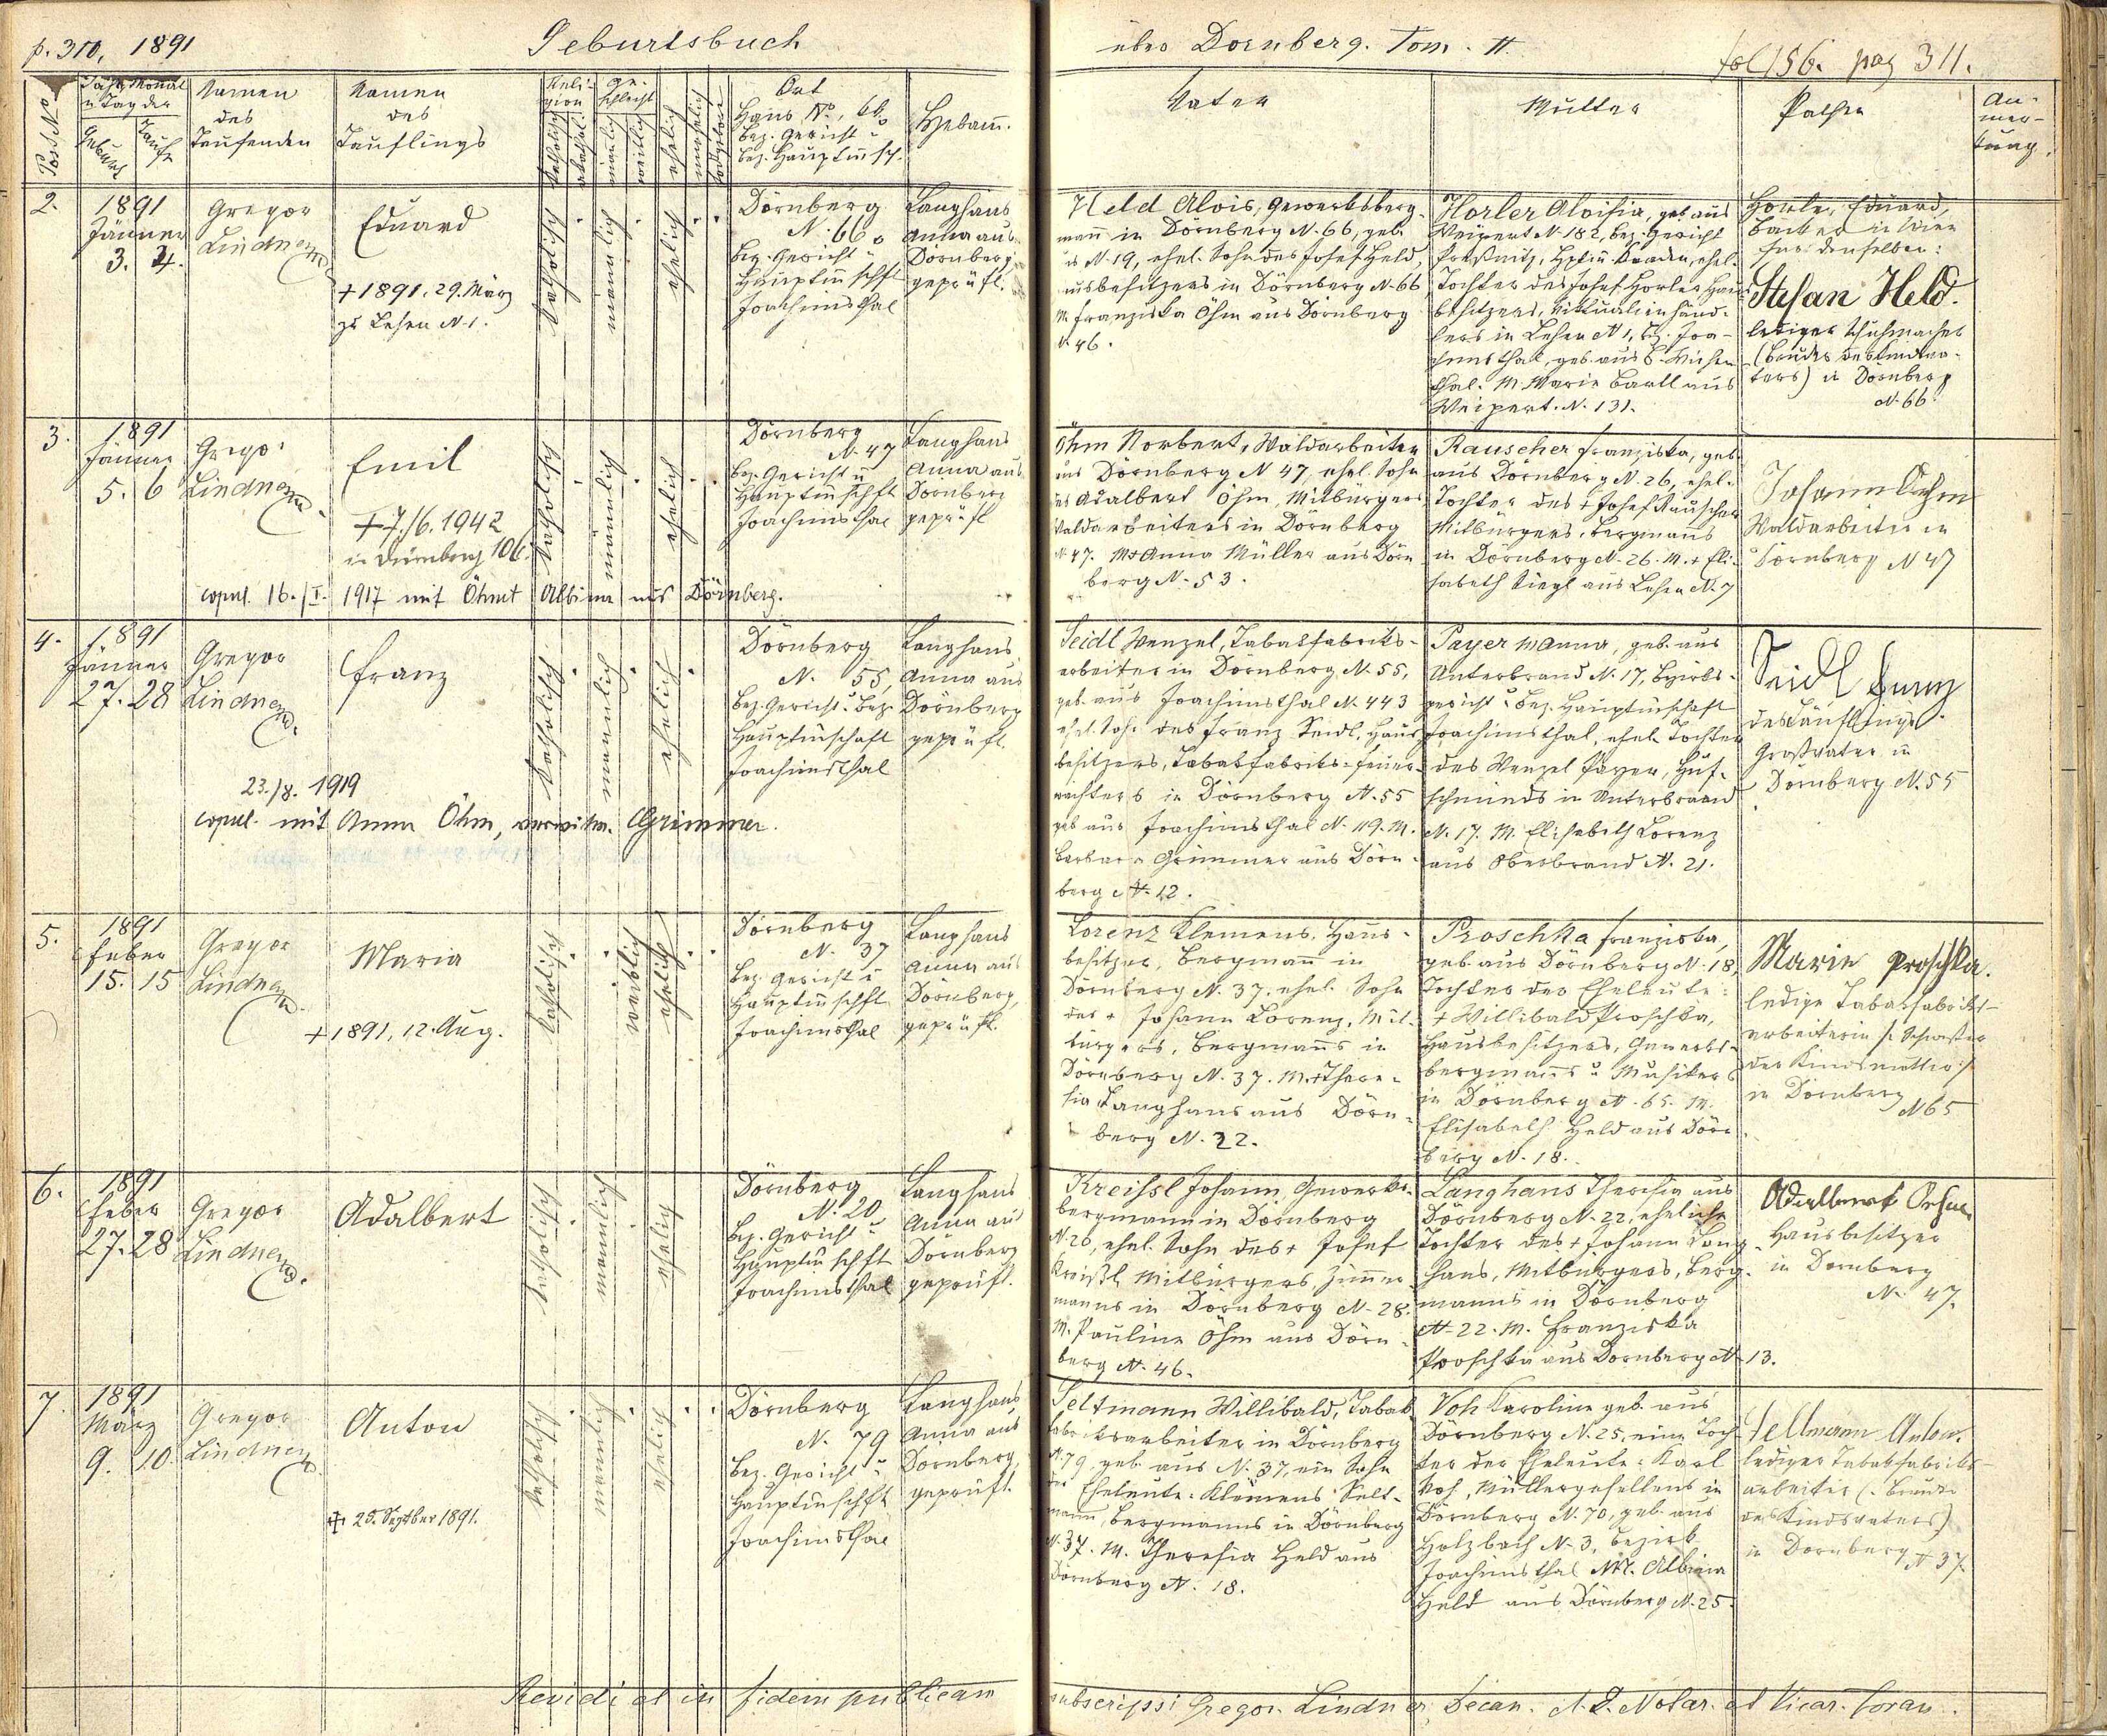 p. 310, 1891
Geburtsbuch
über Dörnberg. Tom. II
fol 156. pag 311.
Post No
Jahr, Monat
u Tag der
Geburt
Taufe
Namen
des
Taufenden
Namen
des
Täuflings
Reli-
gion
katholisch
akathol.
Ge-
schlecht
männlich
weiblich
ehelich
unehelich
todtgeboren
Ort
Haus No,
Bez. Gericht u
Bez. Hauptm̄sch.
Hebam̄.
Vater
Mutter
Pathen
An-
mer-
kung.
2.
1891
Jänner
3. 4.
Gregor
Lindner
Eduard
+ 1891. 29. März
zu Lehen N. 1.
katholisch
männlich
ehelich
Dörnberg
N. 66
Bez. Gericht u
Hauptm̄schft
Joachimsthal
Langhans
Anna aus
Dörnberg
geprüft.
Held Alois, Gewerksberg-
mañ in Dörnberg N. 66, geb.
N. 19, ehel. Sohn des Josef Held,
ausbesitzers in Dörnberg N. 66
M. Franziska Öhm aus Dörnberg
N. 46.
Horler Aloisia, geb. aus
Weipert N. 182, Bez. Gericht
Preßnitz, Kaaden, ehel.
Tochter des Josef Horler Haus
besitzers, Viktualienhänd-
lers in Lehen N. 1, Bz. Joa-
chimsthal, geb. aus B. Wiesen
thal. M. Marie Bartl aus
Weipert. N. 131.
Horler Eduard,
Bäcker in Wien
für denselben:
Stefan Held.
lediger Schuhmacher
(Bruder des Kindsva-
ters) in Dörnberg
N. 66.
3.
1891
Jänner
5. 6
Gregor
Lindner
Emil
+ 7./6. 1942
in Dürnberg 106.
copul. 16./I. 1917 mit Öhmt Albina aus Dörnberg.
katholisch
männlich
ehelich
Dörnberg
N. 47
Bez. Gericht u
Hauptm̄schft
Joachimsthal
Langhans
Anna aus
Dörnberg
geprüft
Öhm Norbert, Waldarbeiter
aus Dörnberg N 47, ehel. Sohn
des Adalbert Öhm, Mitbürgers
Waldarbeiters in Dörnberg
N. 47. M. + Anna Müller aus Dörn
berg N. 53.
Rauscher Franziska, geb.
aus Dörnberg N. 26, ehel.
Tochter des + Josef Rauscher
Mitbürgers, Bergmans
in Dörnberg N. 26. M. + Eli-
sabeth aus Lehen N. 7
Johann Oehm
Waldarbeiter in
Dörnberg N 47
4.
1891
Jänner
27. 28
Gregor
Lindner
Franz
23./8. 1919
copul. mit Anna Öhm, verwitw. Grimmer.
katholisch
männlich
ehelich
Dörnberg
N. 55,
Bez. Gericht u. Bez.
Hauptm̄schaft
Joachimsthal
Langhans
Anna aus
Dörnberg
geprüft.
Seidl Wenzel, Tabakfabriks-
arbeiter in Dörnberg N. 55,
geb. aus Joachimsthal N. 443
ehel. Sohn des Franz Seidl, Haus
besitzers, Tabakfabriks-Feuer-
wächters in Dörnberg N. 55
geb aus Joachimsthal N. 119. M.
Barbara Grimmer aus Dörn-
berg N. 12.
Payer Manna, geb. aus
Unterbrand N. 17, Bezirks-
gericht u. Bez. Hauptm̄schaft
Joachimsthal, ehel. Tochter
des Wenzel Payer, Huf-
schmieds in Unterbrand
N. 17. M. Elisabeth Lorenz
aus Oberbrand N. 21.
Seidl Franz
des Täuflings
Großvater in
Dörnberg N. 55
5.
1891
Feber
15. 15
Gregor
Lindner
Maria
+ 1891, 12. Aug.
katholisch
weiblich
ehelich
Dörnberg
N. 37
Bez. Gericht u
Hauptm̄schft
Joachimsthal
Langhans
Anna aus
Dörnberg,
geprüft.
Lorenz Klemens, Haus-
besitzer, Bergmañ in
Dörnberg N. 37. ehel. Sohn
des + Johann Lorenz, Mit-
bürgers, Bergmañs in
Dörnberg N. 37. M. + There-
sia Langhans aus Dörn-
berg N. 22.
Proschka Franziska,
geb. aus Dörnberg N. 18,
Tochter der Eheleute:
+ Willibald Proschka,
Hausbesitzers, Gewerks-
bergmañs u Musikers
in Dörnberg N. 65. M.
Elisabeth Held aus Dörn
berg N. 18.
Marie Proschka.
ledige Tabakfabriks-
arbeiterin /: Schwester
der Kindsmutter :/
in Dörnberg
N 65
6.
1891
Feber
27. 28
Gregor
Lindner
Adalbert
katholisch
männlich
ehelich
Dörnberg
N. 20
Bez. Gericht u
Hauptm̄schft
Joachimsthal
Langhans
Anna aus
Dörnberg
geprüft.
Kreißl Johann, Gewerks-
bergmann in Dörnberg
N. 20, ehel. Sohn des + Josef
Kreißl, Mitbürgers, Zimmer-
manns in Dörnberg N. 28.
M. Pauline Öhm aus Dörn-
berg N. 46.
Langhans Theresia aus
Dörnberg N. 22, eheliche
Tochter des + Johann Lang-
hans, Mitbürgers, Berg-
manns in Dörnberg
N. 22. M. Franziska
Proschka aus Dörnberg N 13.
Adalbert Oehm
Hausbesitzer
in Dörnberg
N. 47.
7.
1891
März
9. 10.
Gregor
Lindner
Anton
+ 25. September 1891.
katholisch
männlich
ehelich
Dörnberg
N. 79
Bez. Gericht u
Hauptm̄schft
Joachimsthal
Langhans
Anna aus
Dörnberg,
geprüft.
Seltmann Willibald, Tabak
fabriksarbeiter in Dörnberg
N. 79, geb. aus N. 37, ein Sohn
der Eheleute: Klemens Selt-
mann, Bergmanns in Dörnberg
N. 37. M. Theresia Held aus
Dörnberg N. 18.
Voh Karoline geb. aus
Dörnberg N. 25, eine Toch-
ter der Eheleute: Karl
Voh, Müllergesellens in
Dörnberg N. 70, geb. aus
Holzbach N. 3, Bezirk
Joachimsthal M. Albina
Held aus Dörnberg N. 25.
Seltmann Anton.
lediger Tabakfabriks-
arbeiter (Bruder
des Kindsvaters)
in Dörnberg N 37.
Revidi et in fidem publicam subscripsi Gregor Lindner, Decan. Notar. et Vicar. foran.